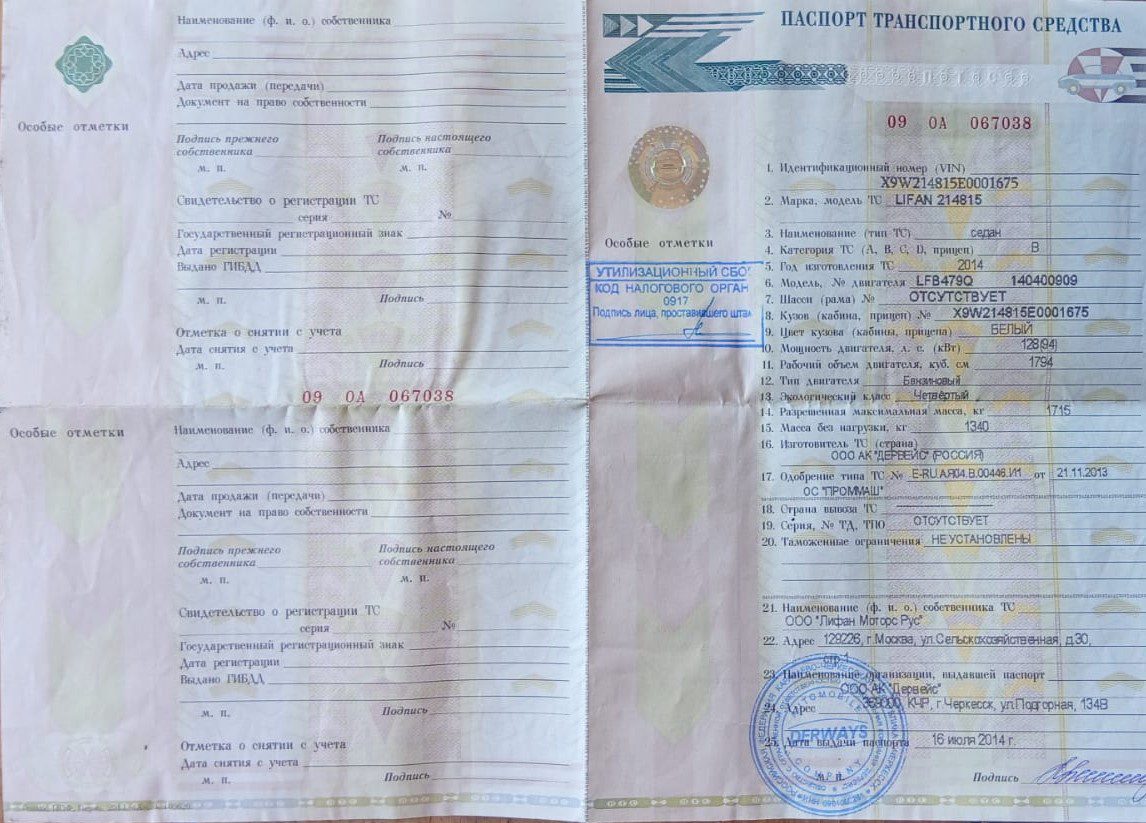 Особые отметки
Наименование (ф. и. о.) собственника
Адрес
Дата продажи (передачи)
Документ на право собственности
Подпись прежнего собственника
Подпись настоящего собственника
м. п.
м. п.
Свидетельство о регистрации ТС
серия №
Государственный регистрационный знак
Дата регистрации
Выдано ГИБДД
м. п. Подпись
Отметка о снятии с учета
Дата снятия с учета
м. п. Подпись
09 ОА 067038
Особые отметки
Наименование (ф. и. о.) собственника
Адрес
Дата продажи (передачи)
Документ на право собственности
Подпись прежнего собственника
Подпись настоящего собственника
м. п.
м. п.
Свидетельство о регистрации ТС
серия №
Государственный регистрационный знак
Дата регистрации
Выдано ГИБДД
м. п. Подпись
Отметка о снятии с учета
Дата снятия с учета
м. п. Подпись
ПАСПОРТ ТРАНСПОРТНОГО СРЕДСТВА
09 ОА 067038
Особые отметки
УТИЛИЗАЦИОННЫЙ СБО
КОД НАЛОГОВОГО ОРГАН
0917
Подпись лица, проставившего штам
1. Идентификационный номер (VIN)
X9W214815E0001675
2. Марка, модель ТС LIFAN 214815
3. Наименование (тип ТС) седан
4. Категория ТС (А, В, С, D, прицеп) В
5. Год изготовления ТС 2014
6. Модель, № двигателя LFB479Q 140400909
7. Шасси (рама) № ОТСУТСТВУЕТ
8. Кузов (кабина, прицеп) № X9W214815E0001675
9. Цвет кузова (кабины, прицепа) БЕЛЫЙ
10. Мощность двигателя, л. с. (кВт) 128(94)
11. Рабочий объем двигателя, куб. см 1794
12. Тип двигателя Бензиновый
13. Экологический класс Четвертый
14. Разрешенная максимальная масса, кг 1715
15. Масса без нагрузки, кг 1340
16. Изготовитель ТС (страна)
ООО АК "ДЕРВЕЙС" (РОССИЯ)
17. Одобрение типа ТС № E-RU.АЯ04.В.00446.И1 от 21.11.2013
ОС "ПРОММАШ"
18. Страна вывоза ТС
19. Серия, № ТД, ТПО ОТСУТСТВУЕТ
20. Таможенные ограничения НЕ УСТАНОВЛЕНЫ
21. Наименование (ф. и. о.) собственника ТС
ООО "Лифан Моторс Рус"
22. Адрес 129226, г.Москва, ул.Сельскохозяйственная, д.30,
стр.1
23. Наименование организации, выдавшей паспорт
ООО АК "Дервейс"
24. Адрес 369000, КЧР, г.Черкесск, ул.Подгорная, 134В
DERWAYS
COMPANY
25. Дата выдачи паспорта 16 июля 2014 г.
м. п. Подпись